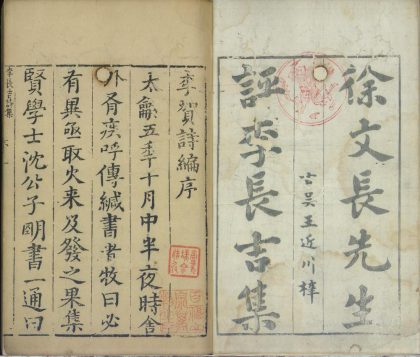 徐文長先生
古吳王近川梓
評李長吉集
李賀詩編序
太龢五秊十月中半夜時舍
外有疾呼傳緘書者牧曰必
有異亟取火来及發之果集
賢學士沈公子眀書一通曰
李長吉詩集